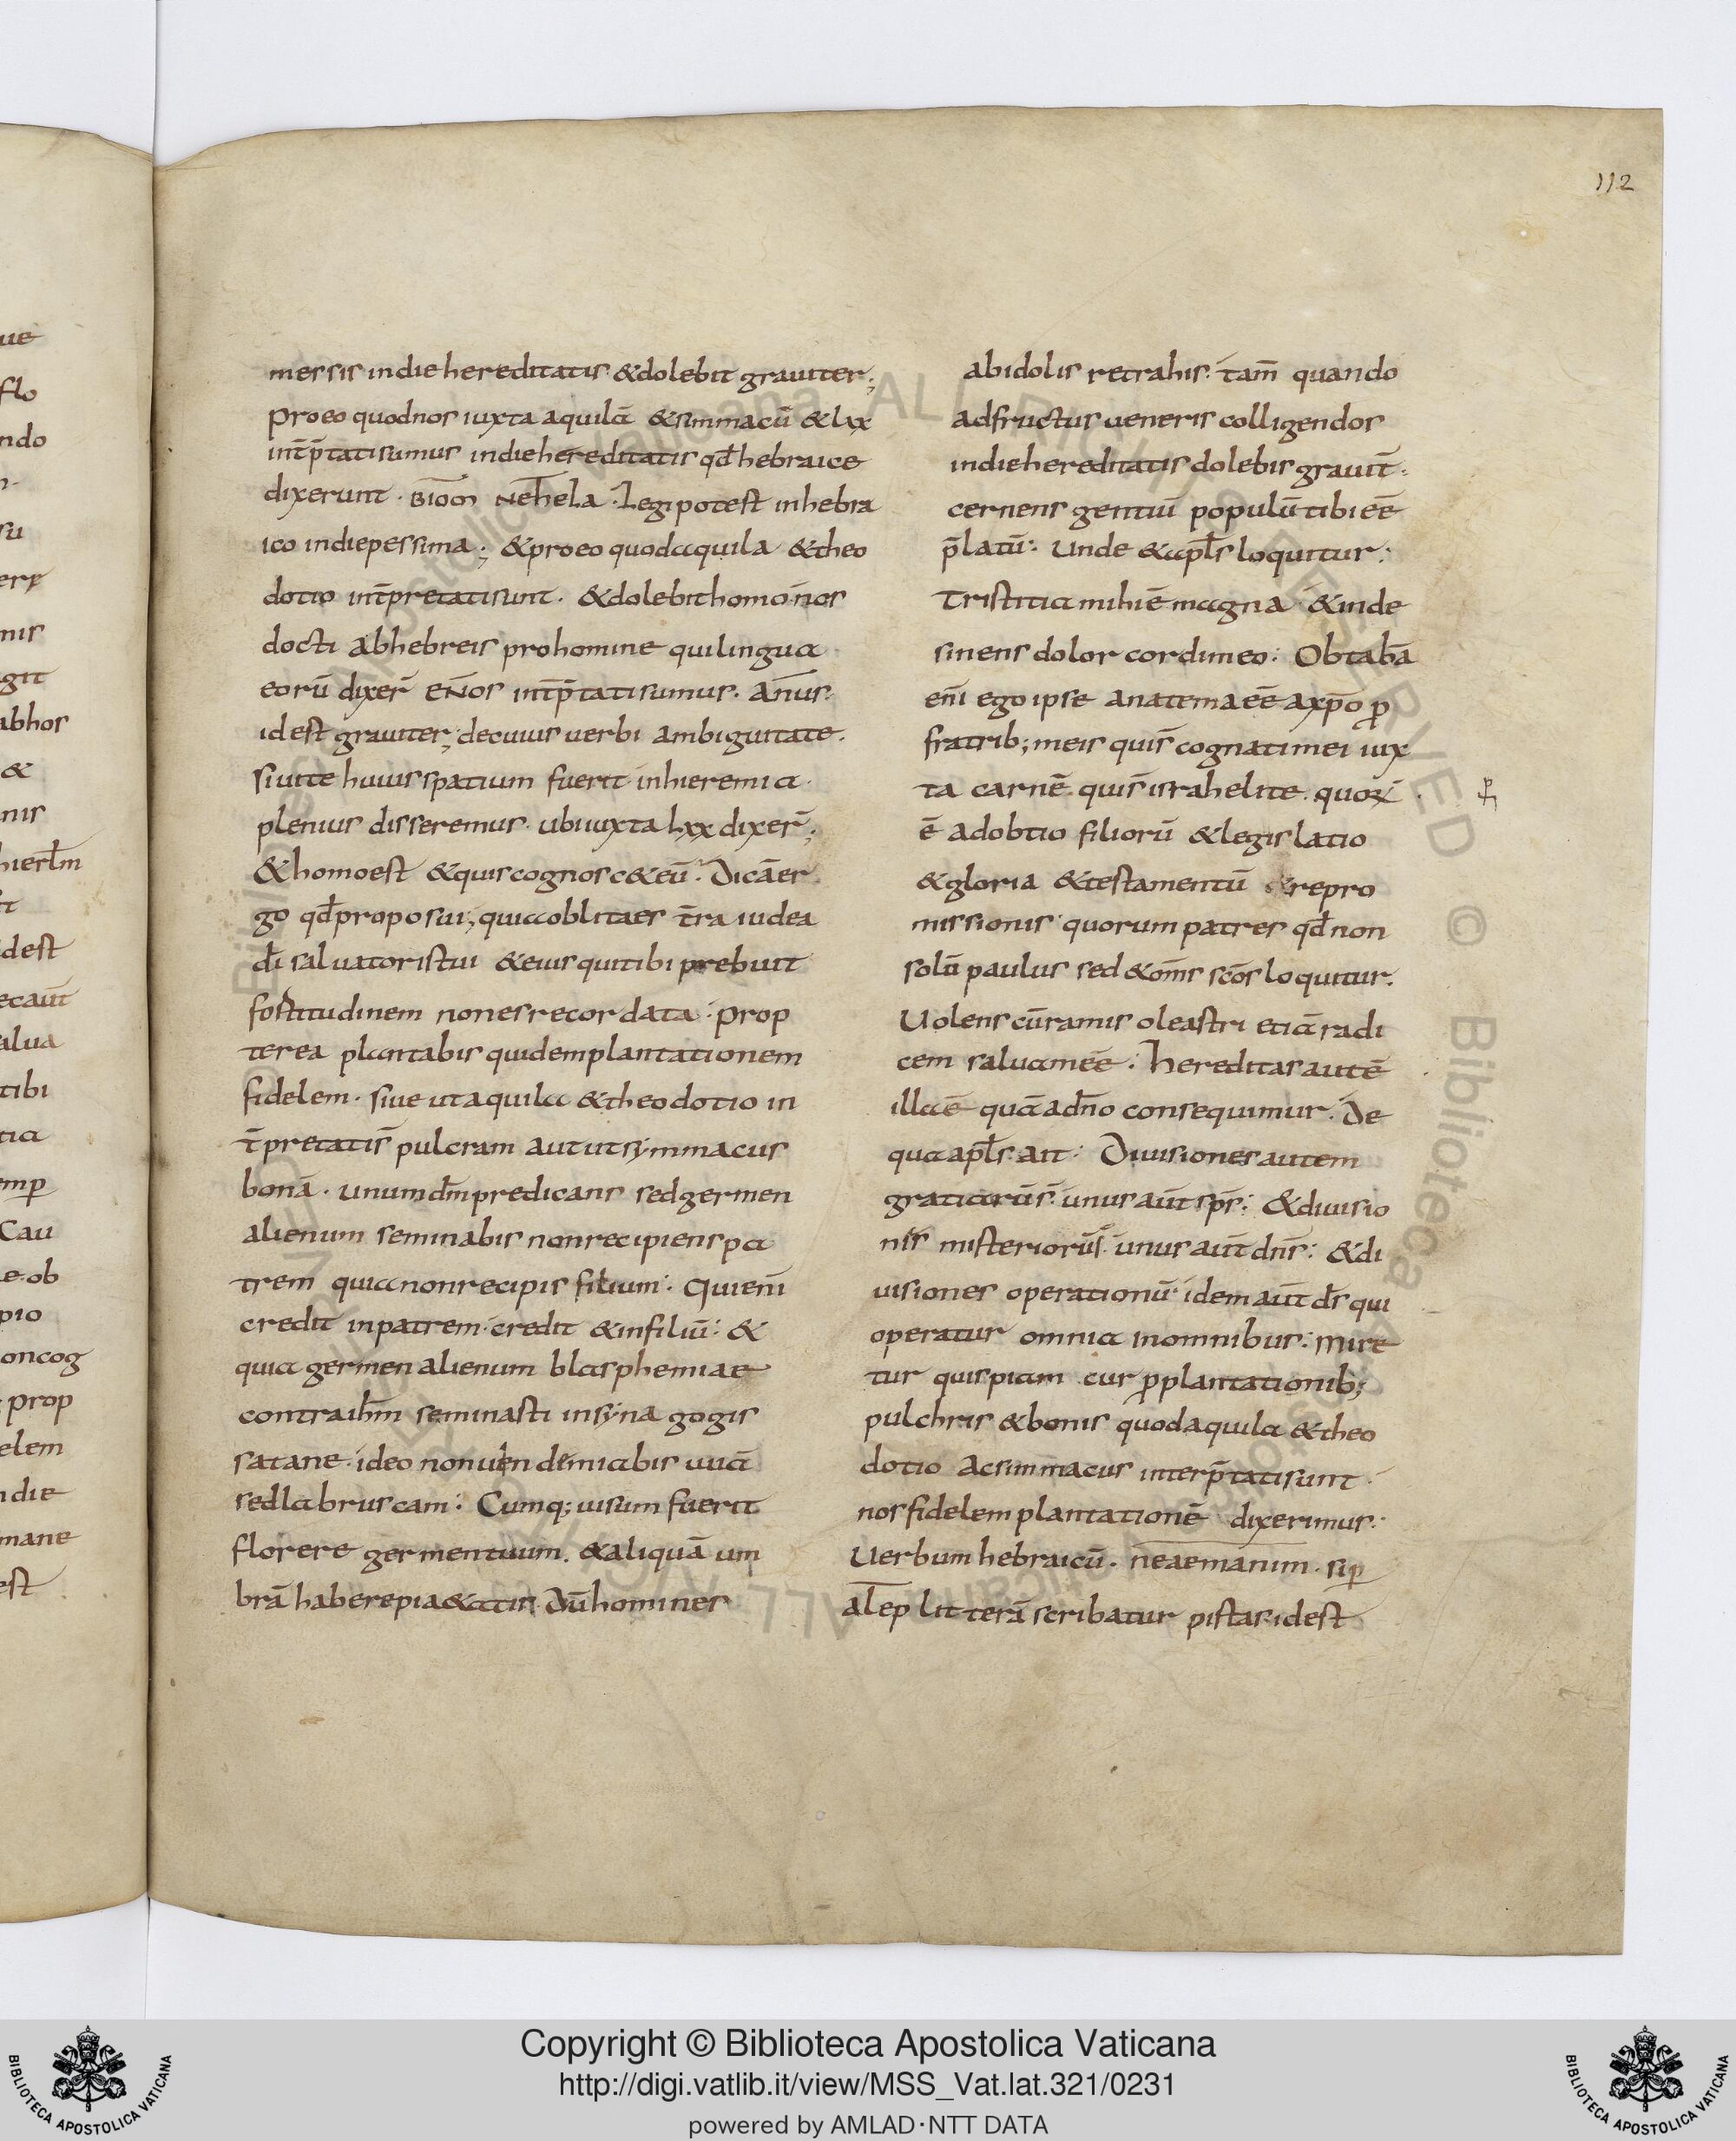 112
messis indiehereditatis &dolebit grauiter;
Proeo quodnos iuxta aquilā &simmacū &lxx
int̄p̄tatisumus indiehereditatis qd̄ hebraice
dixerunt · BIOM NEHELA · Legipotest inhebra
ico indiepessima; &proeo quodaquila &theo
dotio int̄pretatisunt · &dolebithomo nos
docti abhebreis prohomine quilingua
eorū dixer̄ ENOS int̄p̄tatisumus · an̄us·
idest grauiter; decuius uerbi ambiguitate·
siuite huius spatium fuerit inhieremia·
plenius disseremus· ubiiuxta Lxx dixer̄;
&homoest &quiscognosc&eū· Dicāer
go qd̄proposui; quiaoblitaes t̄ra iudea
dī saluatoristui &eius quitibi prebuit
fortitudinem nonesrecordata· prop
terea plantabis quidemplantationem
fidelem· siue utaquila &theodotio in
t̄pretatis̄ pulcram aututsymmacus
bonā· unumdm̄predicans sedgermen
alienum seminabis nonrecipienspa
trem quianonrecipis filium· Quienī
credit inpatrem· credit &infiliū: &
quia germenalienum blasphemiae
contraihm̄ seminasti insynagogis
satane· ideo nonuendemiabis uuā
sedlabruscam· Cumq; uisum fuerit
florere germentuum· &aliquā um
brā haberepia&atis· Dūhomines
abidolis retrahis· tam̄ quando
adfructus ueneris colligendos
indiehereditatis dolebis grauit̄·
cernens gentiū populū tibieē
p̄latū· Unde &apls̄ loquitur·
Tristitia mihiē magna &inde
sinens dolor cordimeo· Obtabā
enī ego ipse anatemaeē axp̄o ꝓ
fratrib; meis quis̄ cognatimei iux
ta carnē quis̄ israhelite· quoꝝ
ē adobtio filiorū &legislatio
&gloria &testamentū &repro
missionis· quorum patres qd̄ non
solū paulus sed &om̄s scōs loquitur·
Uolens cūramis oleastri etiā radi
cem saluameē· hereditas autē
illaē quā adn̄o consequimur· De
qua apls̄ ait· Diuisiones autem
gratiarūs̄· unus aūt sp̄s· &diuisio
nis misteriorūs̄· unus aūt dn̄s· &di
uisiones operationū· idem aūt ds̄ qui
operatur omnia inomnibus· Mire
tur quispiam cur ꝓplantationib;
pulchris &bonis quodaquila &theo
dotio acsimmacus interp̄tatisunt·
nos fidelem plantationē dixerimus·
Uerbum hebraicū· neaemanim· sip̱
alep litterā scribatur pistas· idest
Copyright © Biblioteca Apostolica Vaticana
http://digi.vatlib.it/view/MSS_Vat.lat.321/0231
powered by AMLAD·NTT DATA
BIBLIOTECA APOSTOLICA VATICANA
BIBLIOTECA APOSTOLICA VATICANA